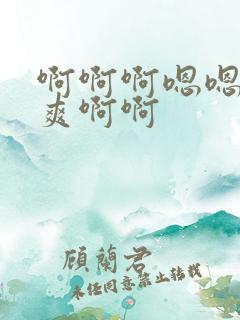 啊啊啊嗯嗯
爽啊啊
顾蘭君
未经同意禁止转载